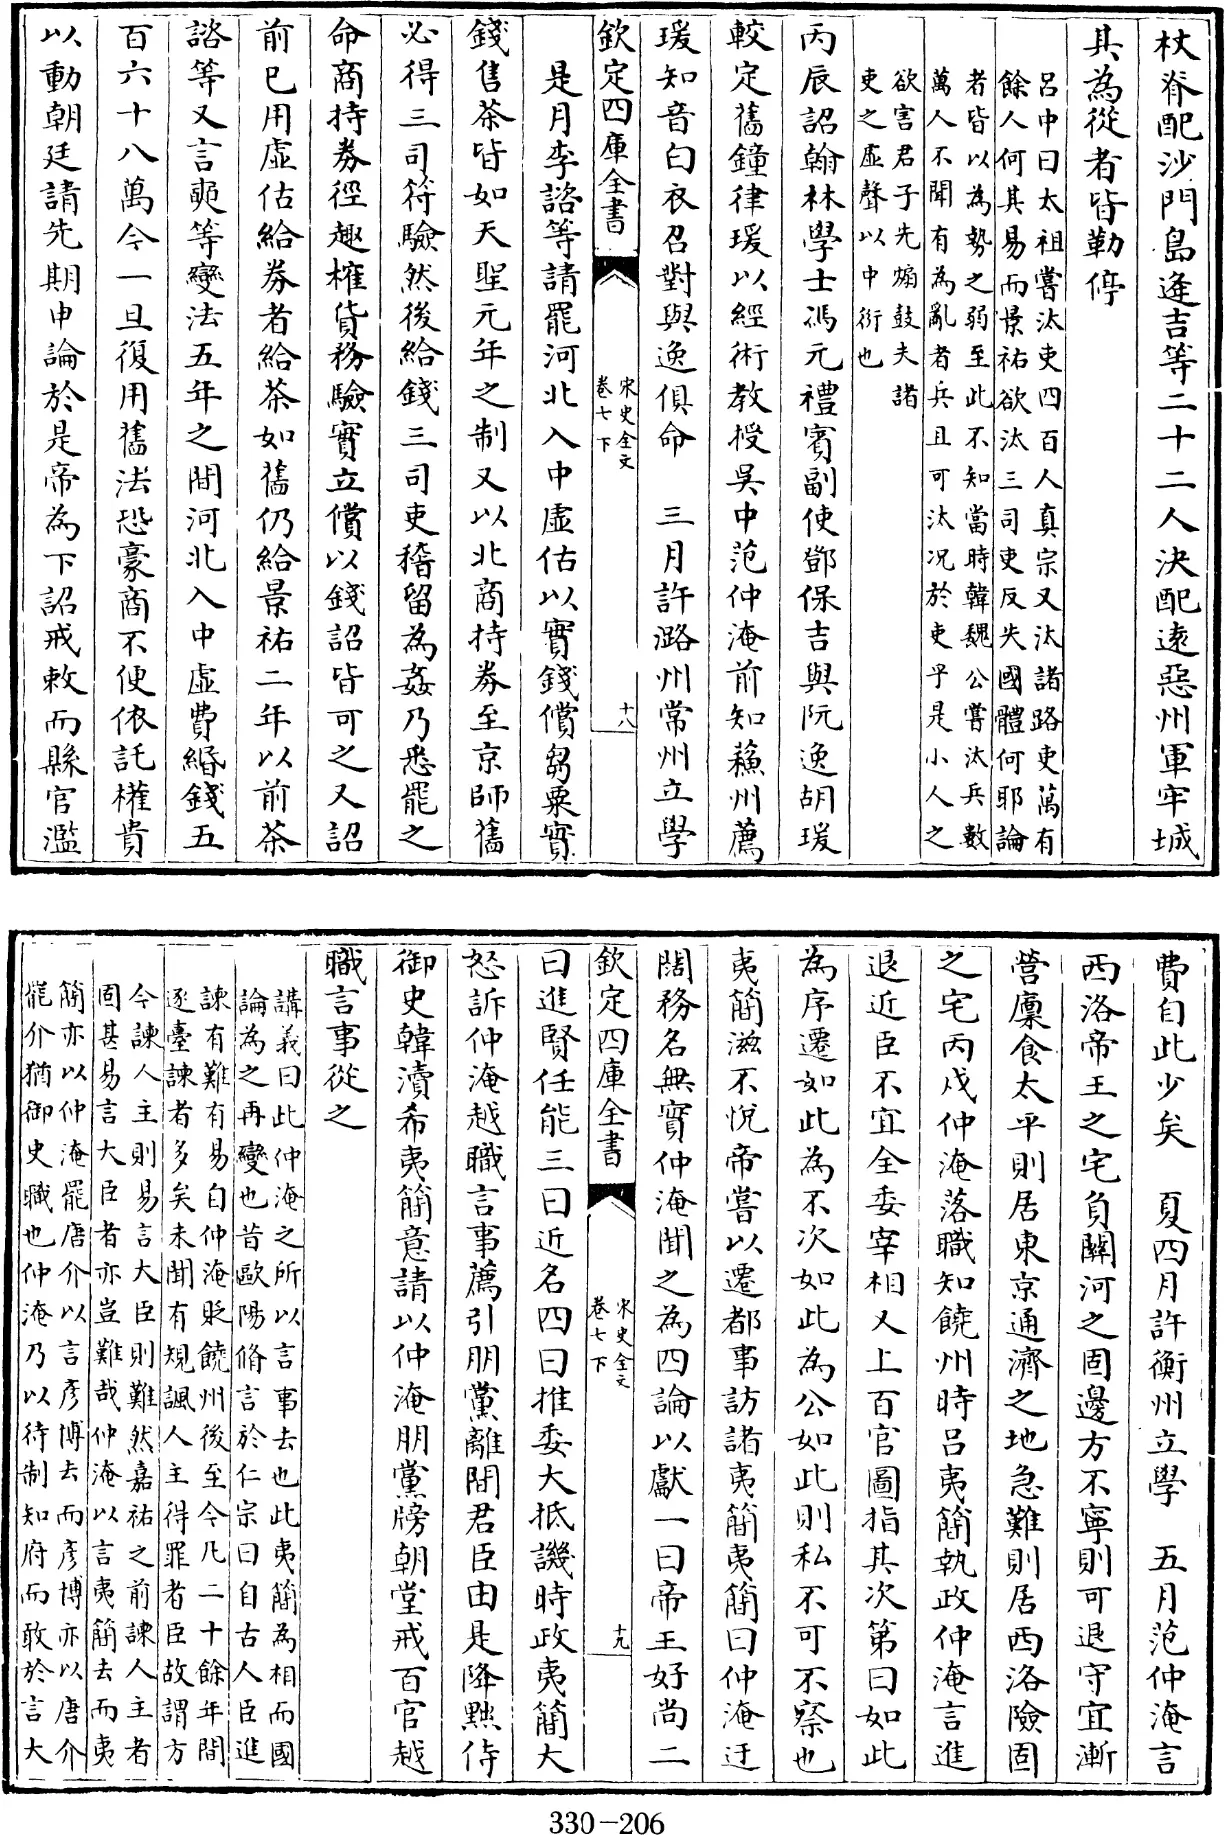 杖脊配沙門島逄吉等二十二人決配逺惡州軍牢城
其為從者皆勒停
呂中曰太祖嘗汰吏四百人真宗又汰諸路吏萬有
餘人何其易而景祐欲汰三司吏反失國體何耶論
者皆以為勢之弱至此不知當時韓魏公嘗汰兵數
萬人不聞有為亂者兵且可汰况於吏乎是小人之
欲害君子先煽鼓夫諸
吏之虛聲以中衍也
丙辰詔翰林學士馮元禮賓副使鄧保吉與阮逸胡瑗
較定舊鐘律瑗以經術教授吳中范仲淹前知蘇州薦
瑗知音白衣召對與逸俱命　三月許潞州常州立學
欽定四庫全書
宋史全文
卷七下
十八
是月李諮等請罷河北入中虛估以實錢償芻粟實
錢售茶皆如天聖元年之制又以北商持券至京師舊
必得三司符驗然後給錢三司吏稽留為姦乃悉罷之
命商持券徑趣榷貨務驗實立償以錢詔皆可之又詔
前已用虛估給券者給茶如舊仍給景祐二年以前茶
諮等又言奭等變法五年之間河北入中虛費緡錢五
百六十八萬今一旦復用舊法恐豪商不便依託權貴
以動朝廷請先期申論於是帝為下詔戒敕而縣官濫
費自此少矣　夏四月許衡州立學　五月范仲淹言
西洛帝王之宅負關河之固邊方不寧則可退守宜漸
營廩食太平則居東京通濟之地急難則居西洛險固
之宅丙戌仲淹落職知饒州時呂夷簡執政仲淹言進
退近臣不宜全委宰相又上百官圖指其次第曰如此
為序遷如此為不次如此為公如此則私不可不察也
夷簡滋不悅帝嘗以遷都事訪諸夷簡夷簡曰仲淹迂
闊務名無實仲淹聞之為四論以獻一曰帝王好尚二
欽定四庫全書
宋史全文
卷七下
十九
曰進賢任能三曰近名四曰推委大抵譏時政夷簡大
怒訴仲淹越職言事薦引朋黨離間君臣由是降黜侍
御史韓瀆希夷簡意請以仲淹朋黨牓朝堂戒百官越
職言事從之
講義曰此仲淹之所以言事去也此夷簡為相而國
論為之再變也昔歐陽脩言於仁宗曰自古人臣進
諫有難有易自仲淹貶饒州後至今凡二十餘年間
逐臺諫者多矣未聞有規諷人主得罪者臣故謂方
今諫人主則易言大臣則難然嘉祐之前諫人主者
固甚易言大臣者亦豈難哉仲淹以言夷簡去而夷
簡亦以仲淹罷唐介以言彥博去而彥博亦以唐介
罷介猶御史職也仲淹乃以待制知府而敢於言大
330-206